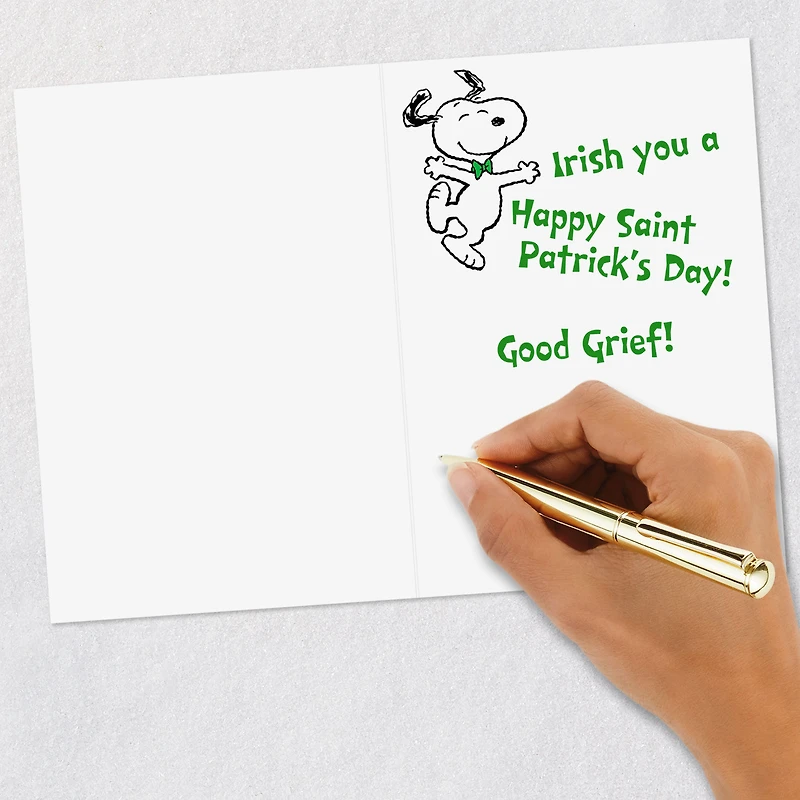 Irish you a
Happy Saint
Patrick's Day!
Good Grief!